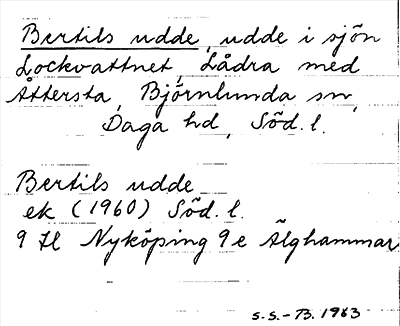 Bertils udde, udde i sjön
Lockvattnet, Lådra med
Åttersta, Björnlunda sn,
Daga hd, Söd. l.
Bertils udde
ek (1960) Söd. l.
9 H Nyköping 9e Älghammar
S.S.-B. 1963